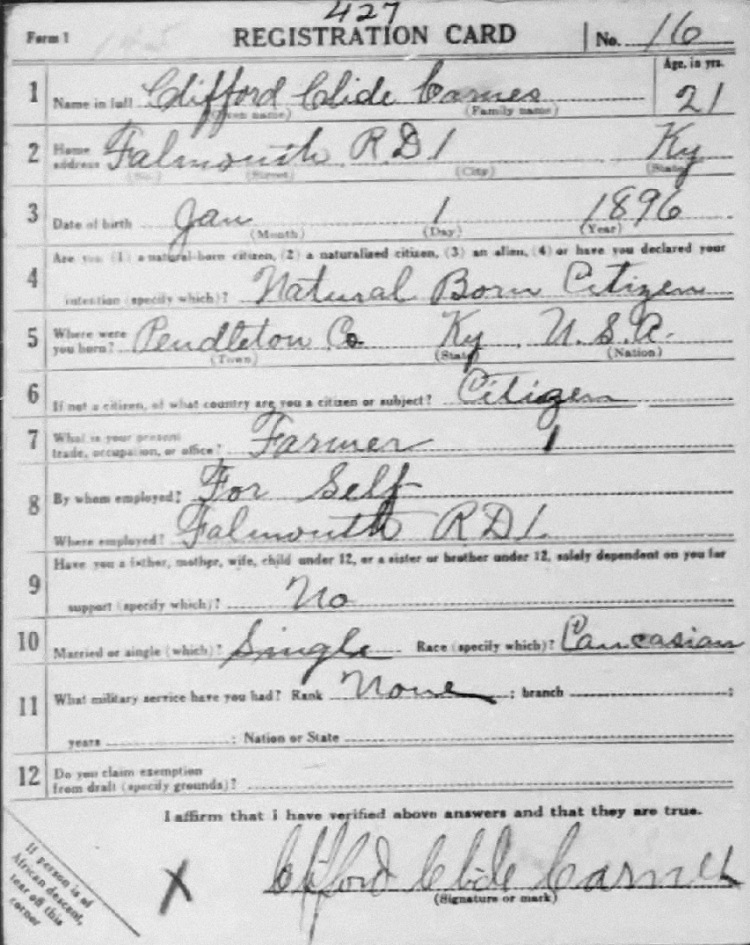 427
Form 1 145 REGISTRATION CARD No. 16
Age, in yrs.
1 Name in full Clifford Clide Carnes 21
(Given name) (Family name)
2 Home address Falmouth R.D 1 Ky
(No.) (Street) (City) (State)
3 Date of birth Jan 1 1896
(Month) (Day) (Year)
4 Are you (1) a natural-born citizen, (2) a naturalized citizen, (3) an alien, (4) or have you declared your
intention (specify which)? Natural Born Citizen
5 Where were you born? Pendleton Co. Ky. U.S.A.
(Town) (State) (Nation)
6 If not a citizen, of what country are you a citizen or subject? Citizen
7 What is your present trade, occupation, or office? Farmer 1
8 By whom employed? For Self
Where employed? Falmouth RD1.
9 Have you a father, mother, wife, child under 12, or a sister or brother under 12, solely dependent on you for
support (specify which)? No
10 Married or single (which)? Single Race (specify which)? Caucasian
11 What military service have you had? Rank None ; branch ;
years ; Nation or State
12 Do you claim exemption
from draft (specify grounds)?
I affirm that I have verified above answers and that they are true.
If person is of
African descent,
tear off this
corner
X Clifford Clide Carnes
(Signature or mark)